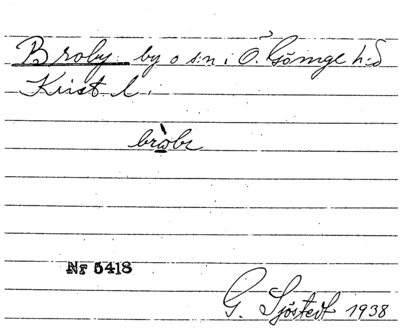 Broby by o sn i Ö. Göinge h:d
Krist. l.
Nr 5418
G. Sjöstedt 1938